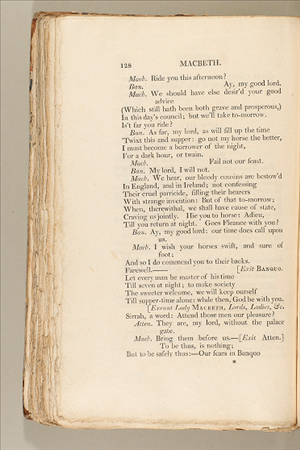 128 MACBETH.
Macb. Ride you this afternoon?
Ban. Ay, my good lord.
Macb. We should have else desir'd your good
advice
(Which still hath been both grave and prosperous,)
In this day's council; but we'll take to-morrow.
Is't far you ride?
Ban. As far, my lord, as will fill up the time
'Twixt this and supper: go not my horse the better,
I must become a borrower of the night,
For a dark hour, or twain.
Macb. Fail not our feast.
Ban. My lord, I will not.
Macb. We hear, our bloody cousins are bestow'd
In England, and in Ireland; not confessing
Their cruel parricide, filling their hearers
With strange invention: But of that to-morrow;
When, therewithal, we shall have cause of state,
Craving us jointly. Hie you to horse: Adieu,
Till you return at night. Goes Fleance with you?
Ban. Ay, my good lord: our time does call upon
us.
Macb. I wish your horses swift, and sure of
foot;
And so I do commend you to their backs.
Farewell.—— [Exit BANQUO.
Let every man be master of his time
Till seven at night; to make society
The sweeter welcome, we will keep ourself
Till supper-time alone: while then, God be with you.
[Exeunt Lady MACBETH, Lords, Ladies, &c.
Sirrah, a word: Attend those men our pleasure?
Atten. They are, my lord, without the palace
gate.
Macb. Bring them before us.—[Exit Atten.]
To be thus, is nothing;
But to be safely thus:—Our fears in Banquo